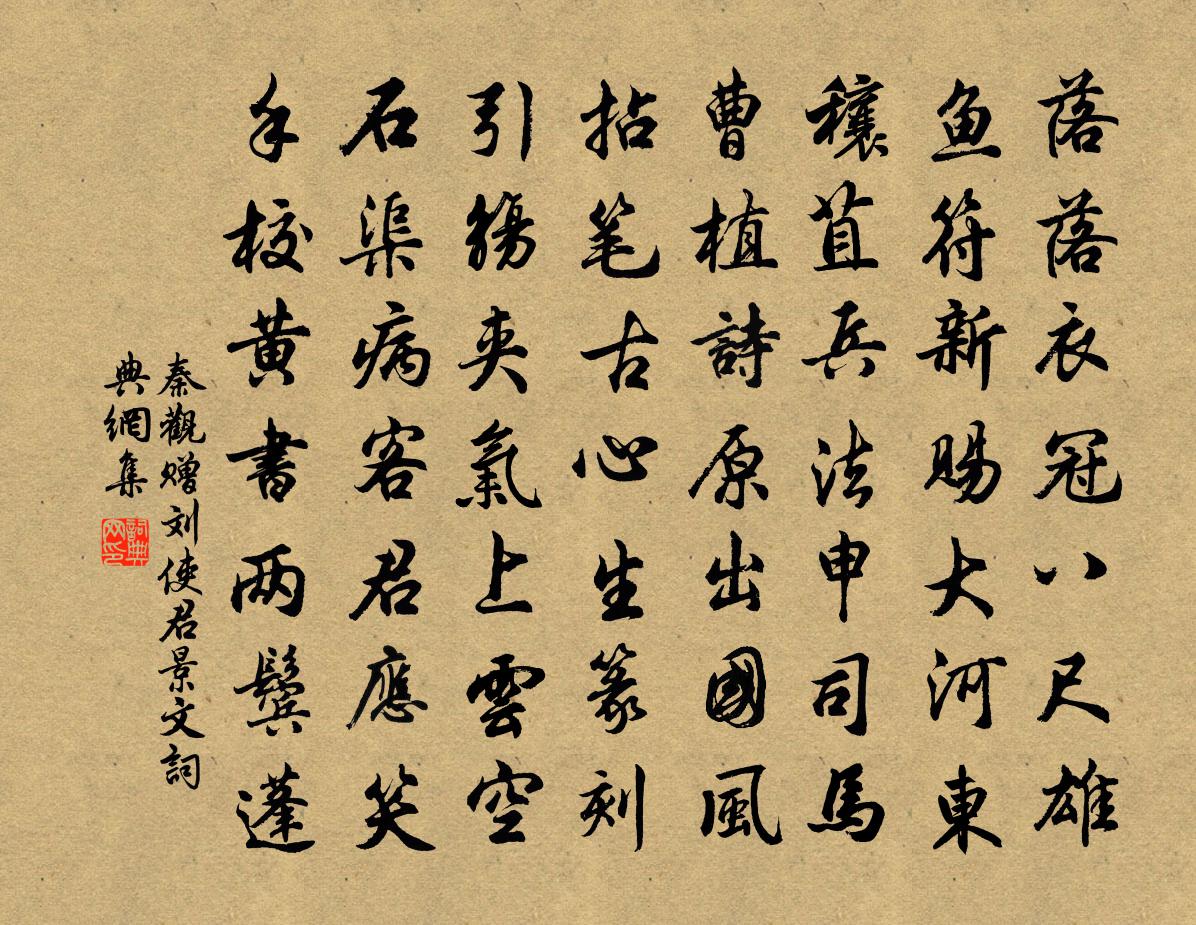 落落衣冠八尺雄
魚符新賜大河東
穰苴兵法申司馬
曹植詩原出國風
拈笔古心生篆刻
引觴夾氣上雲空
石渠病客君應笑
手校黄書两鬢蓬
秦觀赠刘使君景文詞
典網集
詞典网印